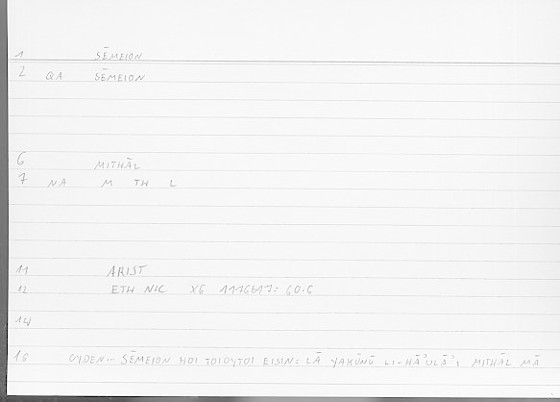 1 SĒMEION
2 QA SĒMEION
6 MITHĀL
7 NA M TH L
11 ARIST
12 ETH NIC X6 1176b17: 60.6
14
16 OYDEN– SĒMEION HOI TOIOYTOI EISIN: LĀ YAKŪNŪ LI-HĀʾULĀʾI MITHĀL MĀ